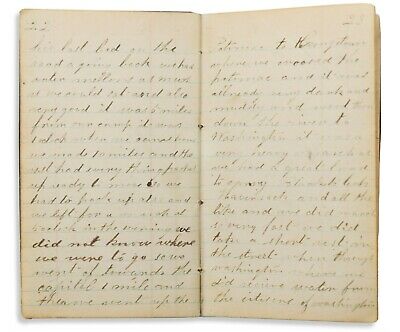 22
his last bed on the
road going back we had
water mellons as much
as we could eat and also
very good it was 5 miles
from our camp it was
we made 10 miles and the
rest had every thing packed
up ready to move so we
had to pack up also and
we left for a march at
6 oclock in the evening we
did not know where
we were to go so we
went of towards the
capitol 1 mile and
then we went up the
23
Potomac to
where we crossed the
potomac and it was
already very dark and
muddy and went then
down the river to
Washington it was a
very heavy march as
we had a great load
to carry
haversacks and all the
like and we did march
very fast we did
take a short rest on
the street then through
washington where we
did receive water from
the citizens of washington